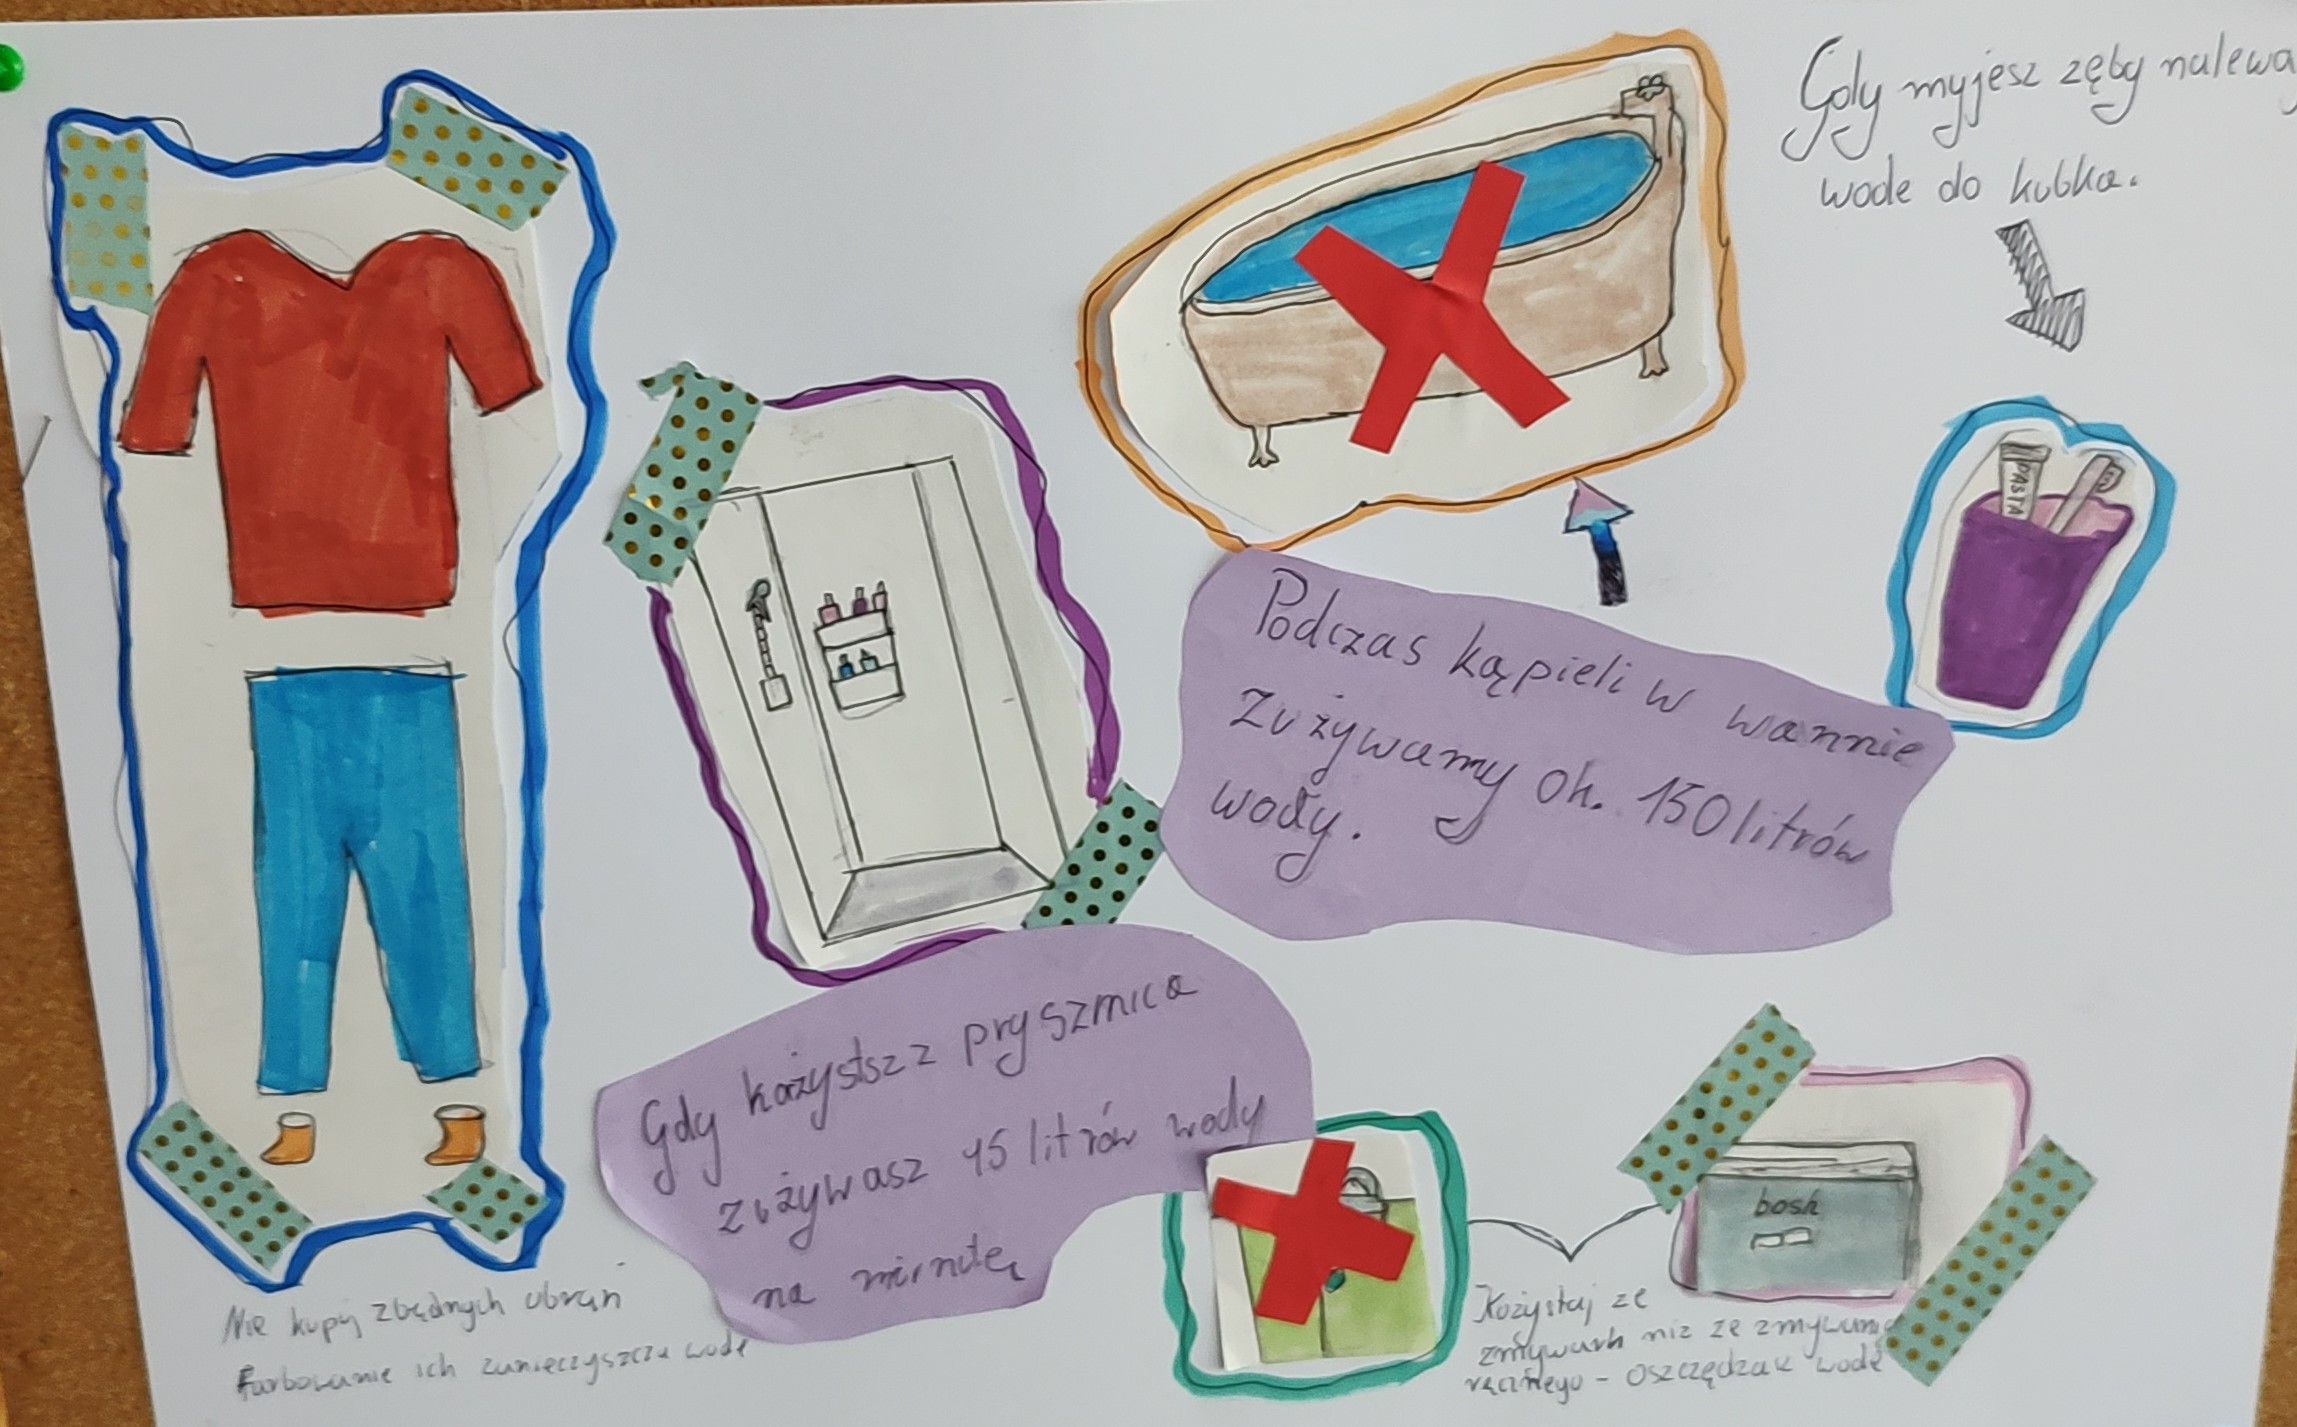 Gdy myjesz zęby nalewa
wode do kubka.
PASTA
Podczas kąpieli w wannie
Zużywamy ok. 150 litrów
wody.
Gdy kożystsz z prysznica
zużywasz 15 litrów wody
na minutę
bosh
Nie kupuj zbędnych ubrań
Farbowanie ich zanieczyszcza wode
Kożystaj ze
zmywark niż ze zmywania
ręcznego - oszczędzak wode